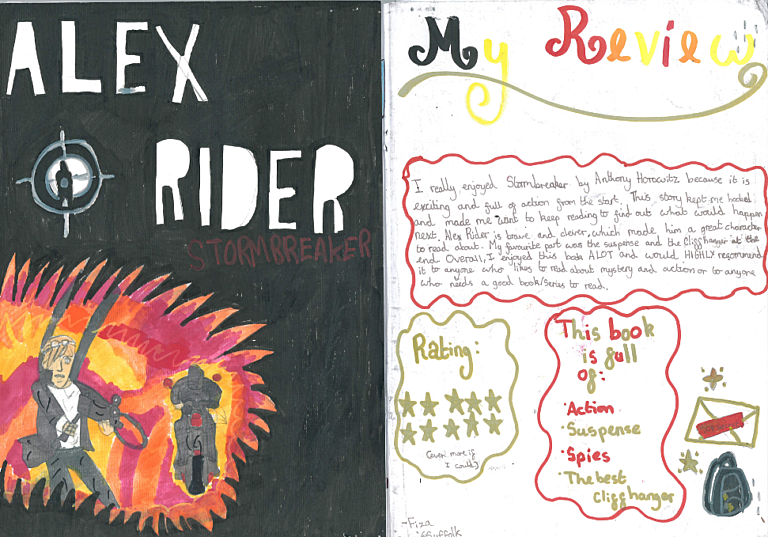 ALEX
RIDER
STORMBREAKER
My Review
I really enjoyed Stormbreaker by Anthony Horowitz because it is
exciting and full of action from the start. This story kept me hooked
and made me want to keep reading to find out what would happen
next. Alex Rider is brave and clever, which made him a great character
to read about. My favourite part was the suspense and the cliffhanger at the
end. Overall, I enjoyed this book ALOT and would HIGHLY recommend
it to anyone who likes to read about mystery and action or to anyone
who needs a good book/series to read.
Rating:
(even more if
I could)
This book
is full
of:
·Action
·Suspense
·Spies
·The best
cliffhanger
-Fiza
Suffolk